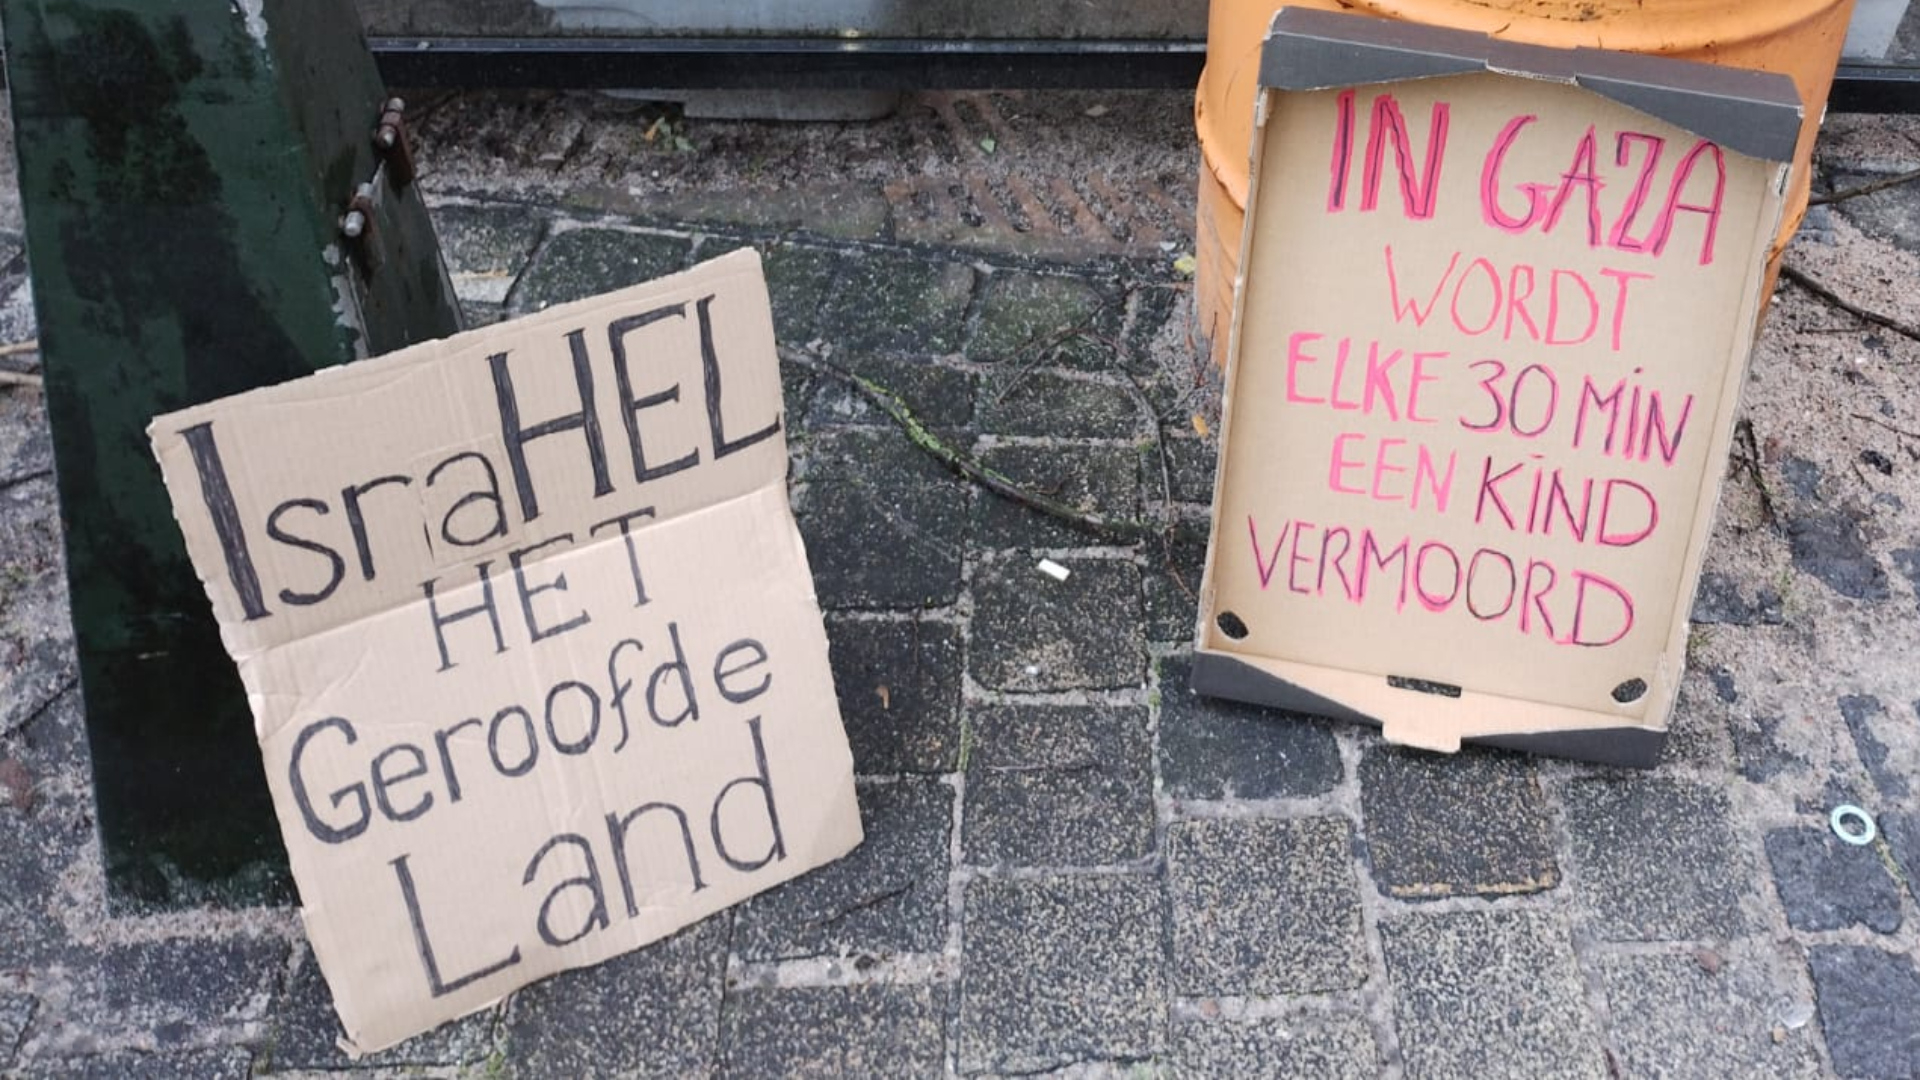 IsraHEL
HET
Geroofde
Land
IN GAZA
WORDT
ELKE 30 MIN
EEN KIND
VERMOORD